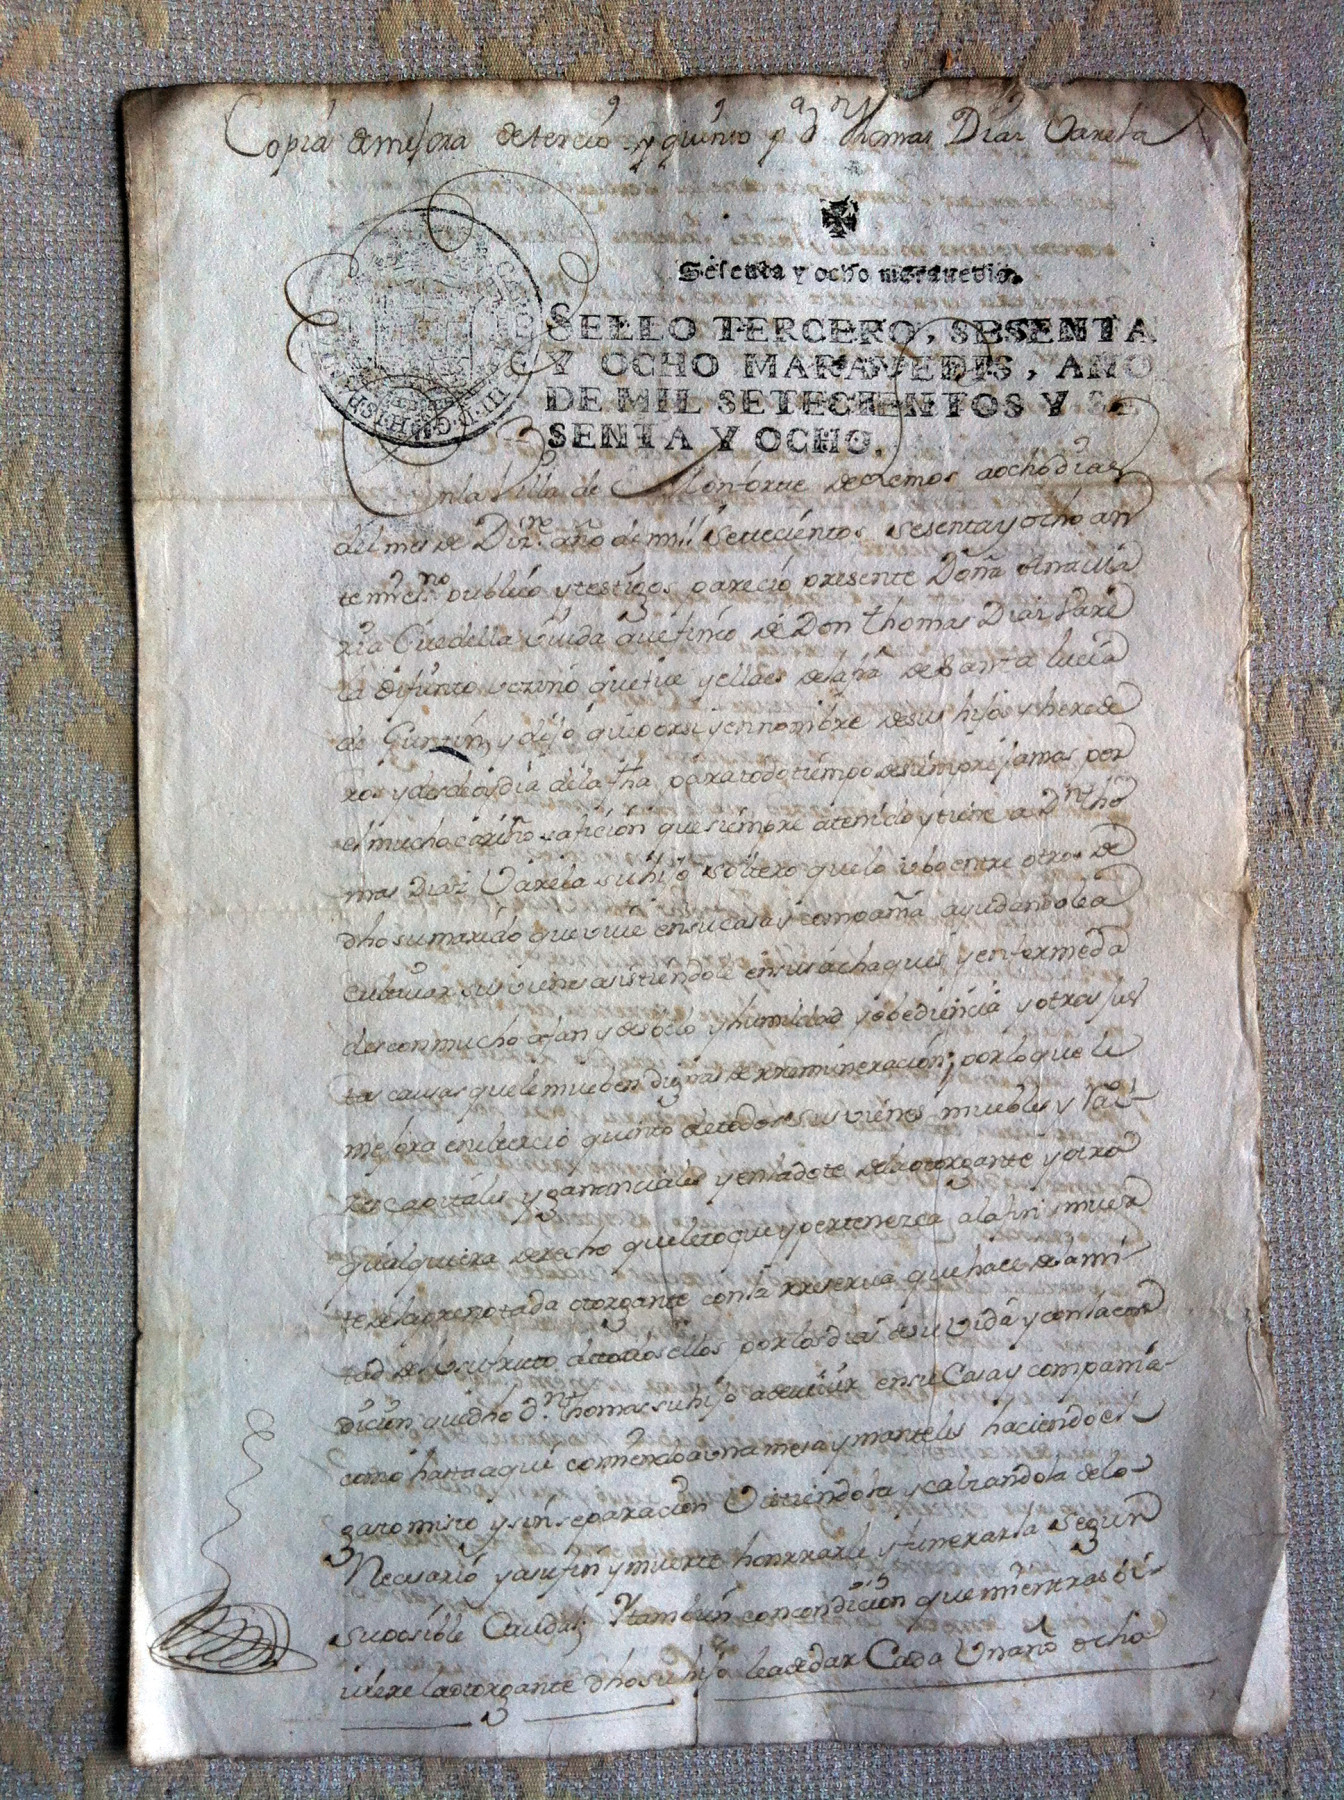 Copia de mejora de tercio y quinto p.ª D.n Thomas Diaz Varela
Sesenta y ocho maravedis.
SELLO TERCERO, SESENTA
Y OCHO MARAVEDIS, AÑO
DE MIL SETECIENTOS Y SE
SENTA Y OCHO.
Enla Villa de Monforte de Lemos a ocho dias
del mes de Diz.re año de mill setecientos sesenta y ocho an
te mi es.no publico y testigos parecio presente Doña Ana Ma
ria viuda que finco de Don Thomas Diaz Vare
la difunto vezino que fue y ella es de la fra de Santa Lucia
de Guntin, y dijo que por si y en nombre de sus hijos y herede
ros y desde oy dia de la fha para todo tiempo de siempre jamas por
el mucho cariño y aficion que siempre a tenido y tiene a D.n Tho
mas Diaz Varela su hijo soltero que lo ubo entre otros de
dho su marido que vive en su casa y compañia ayudandole a
cultivar sus vienes asistiendole en sus achaques y enfermeda
des con mucho afan y desvelo y humildad y obediencia y otras jus
tas causas que le mueben dignas de rremuneracion; por lo que le
mejora en el tercio y quinto de todos sus vienes muebles y rai
zes capitales y gananciales y en la dote de la otorgante y otro
qualquiera derecho que le toque y pertenezca a la fin y muerte
de la prenotada otorgante con la rreserva que hace de la mi
tad de usufruto de todos ellos por los dias de su vida y con la con
dicion que dho d.n Thomas su hijo a de vivir en su Casa y compania
como hasta aqui comiendo a una mesa y manteles haciendo el
gasto misto y sin separacion Vistiendola y calzandola de lo
Necesario y a su fin y muerte honrrarla y funerarla segun
su posible Caudal; Y tambien con condicion que mientras bi
viere la otorgante dho su hijo le a de dar Cada Un año ocho